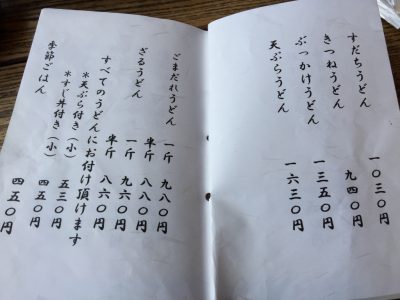 すだちうどん 一〇三〇円
きつねうどん 九四〇円
ぶっかけうどん 一三五〇円
天ぷらうどん 一六三〇円
ごまだれうどん 一斤 九八〇円
半斤 八八〇円
ざるうどん 一斤 九六〇円
半斤 八六〇円
すべてのうどんにお付け頂けます
*天ぷら付き(小) 五三〇円
*すじ丼付き(小) 四五〇円
季節ごはん 四五〇円